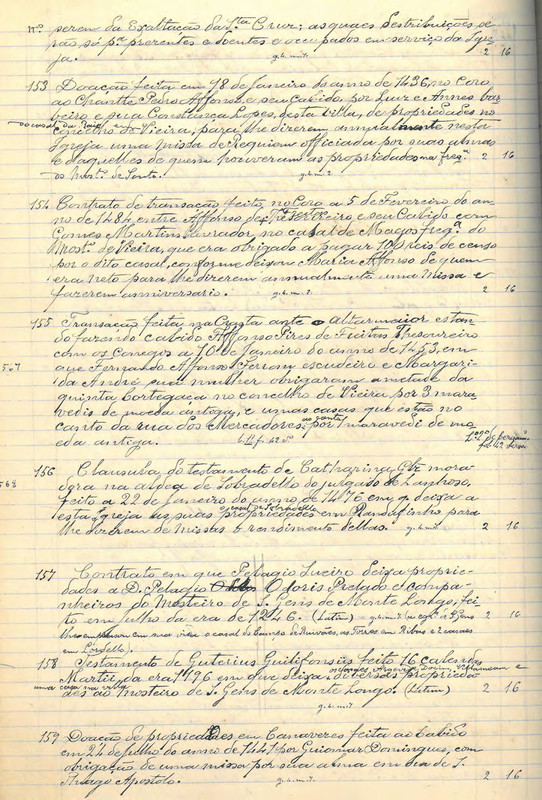 Nº serem da Exaltação da Sta Cruz; as quaes destribuições se
rão só pª prezentes e doentes e occupados em serviço da Igre
ja. 2 16
153 Doação feita em 18 de Janeiro do anno de 1436, no Coro,
ao Chantre Pedro Affonso e seu Cabido, por Luiz e Annes bar
beiro e sua Constança Lopes, desta villa, de propriedades no
concelho de Vieira, para lhe dizerem annualmente nesta
Igreja uma missa de Requiem officiada por suas almas
e daquelles de quem houveram as propriedades na freg.ª 2 16
do Most.º de Souto.
154 Contrato de transação feito, no Coro, a 5 de Fevereiro do an
no de 1484, entre Affonso Thesoureiro e seu Cabido com
Gomes Martins lavrador, no casal de Magos freg.ª do
Most.º de Vieira, que era obrigado a pagar 100 reis de censo
por o dito casal, conforme deixou Maria Affonso de quem
era neto para lhe dizerem annualmente uma Missa e
fazerem anniversario. 2 16
155 Transação feita, na Crasta ante o altar maior estan
do fazendo cabido Affonso Pires de Freitas Thesoureiro
com os Conegos a 10 de Janeiro do anno de 1453, em
567 que Fernando Affonso escudeiro e Margari
da André sua mulher obrigaram ametade da
quinta Cortegaça no concelho de Vieira por 3 mara
vedis de moeda antiga, e umas casas que estão no
canto da rua dos Mercadores por 1 maravedi de mo
eda antiga.
156 Clausula do testamento de Catharina mora
568 dora na aldea de Sobradello do julgado de Lanhoso,
feito a 22 de Janeiro do anno de 1476 em q. deixa a
esta Igreja as suas propriedades em Randufinho para
lhe dizerem de Missas o rendimento dellas. 2 16
157 Contrato em que Pelagio Sueiro deixa proprie-
dades a D. Pelagio Odoris Prelado e compa-
nheiros do Mosteiro de S. Gens de Monte Longo, fei
to em Julho da era de 1246. (Latim) 2 16
158 Testamento de Guterius Guilifonsus feito 16 calendas
Martii, da era 1176 em que deixa diversas proprieda
des ao Mosteiro de S. Gens de Monte Longo. (Latim) 2 16
159 Doação de propriedades em Canaveres feita ao Cabido
em 22 de Julho do anno de 1441 por Guiomar Domingues, com
obrigação de uma missa por sua alma em dia de S.
Thiago Apostolo. 2 16